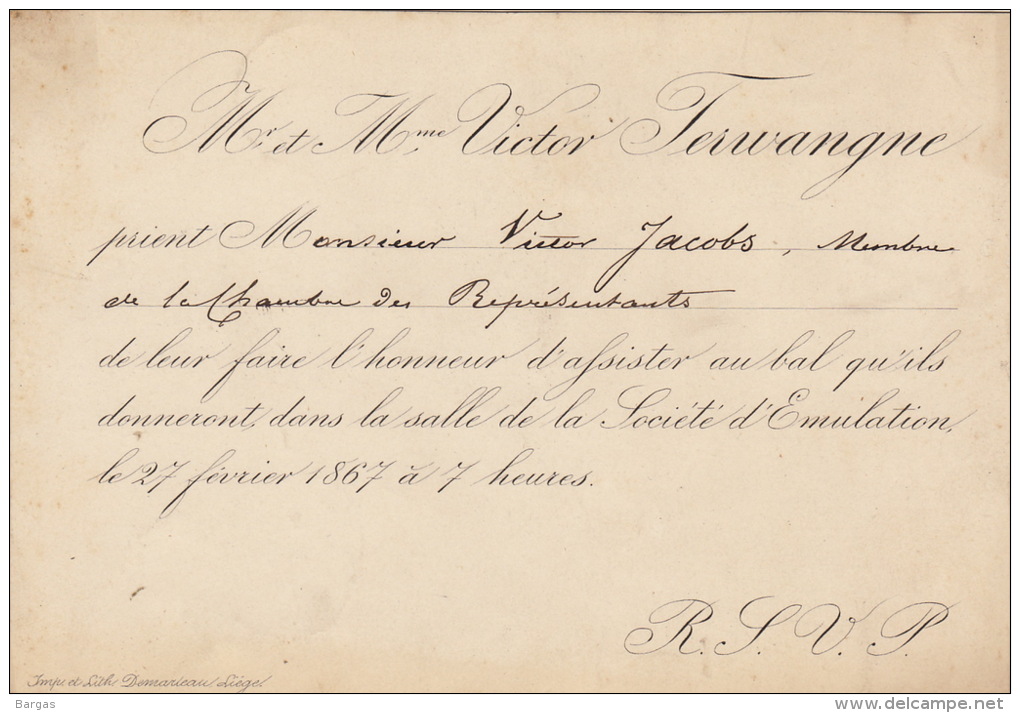 Mr. et Mme. Victor Terwangne
prient Monsieur Victor Jacobs, Membre
de la Chambre des Représentants
de leur faire l'honneur d'assister au bal qu'ils
donneront, dans la salle de la Société d'Emulation,
le 27 février 1867 à 7 heures.
R. S. V. P.
Imp. et Lith. Demarteau, Liége.
Bargas
delcampe.net